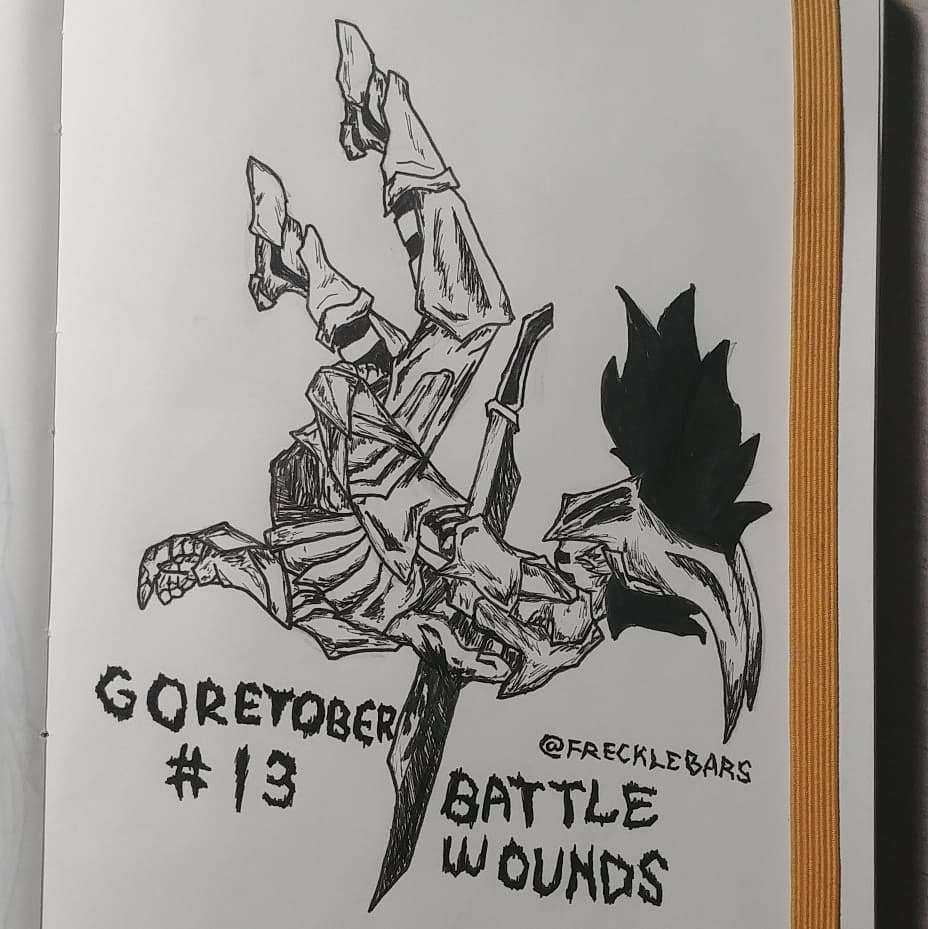 GORETOBER
#13
@FRECKLEBARS
BATTLE
WOUNDS